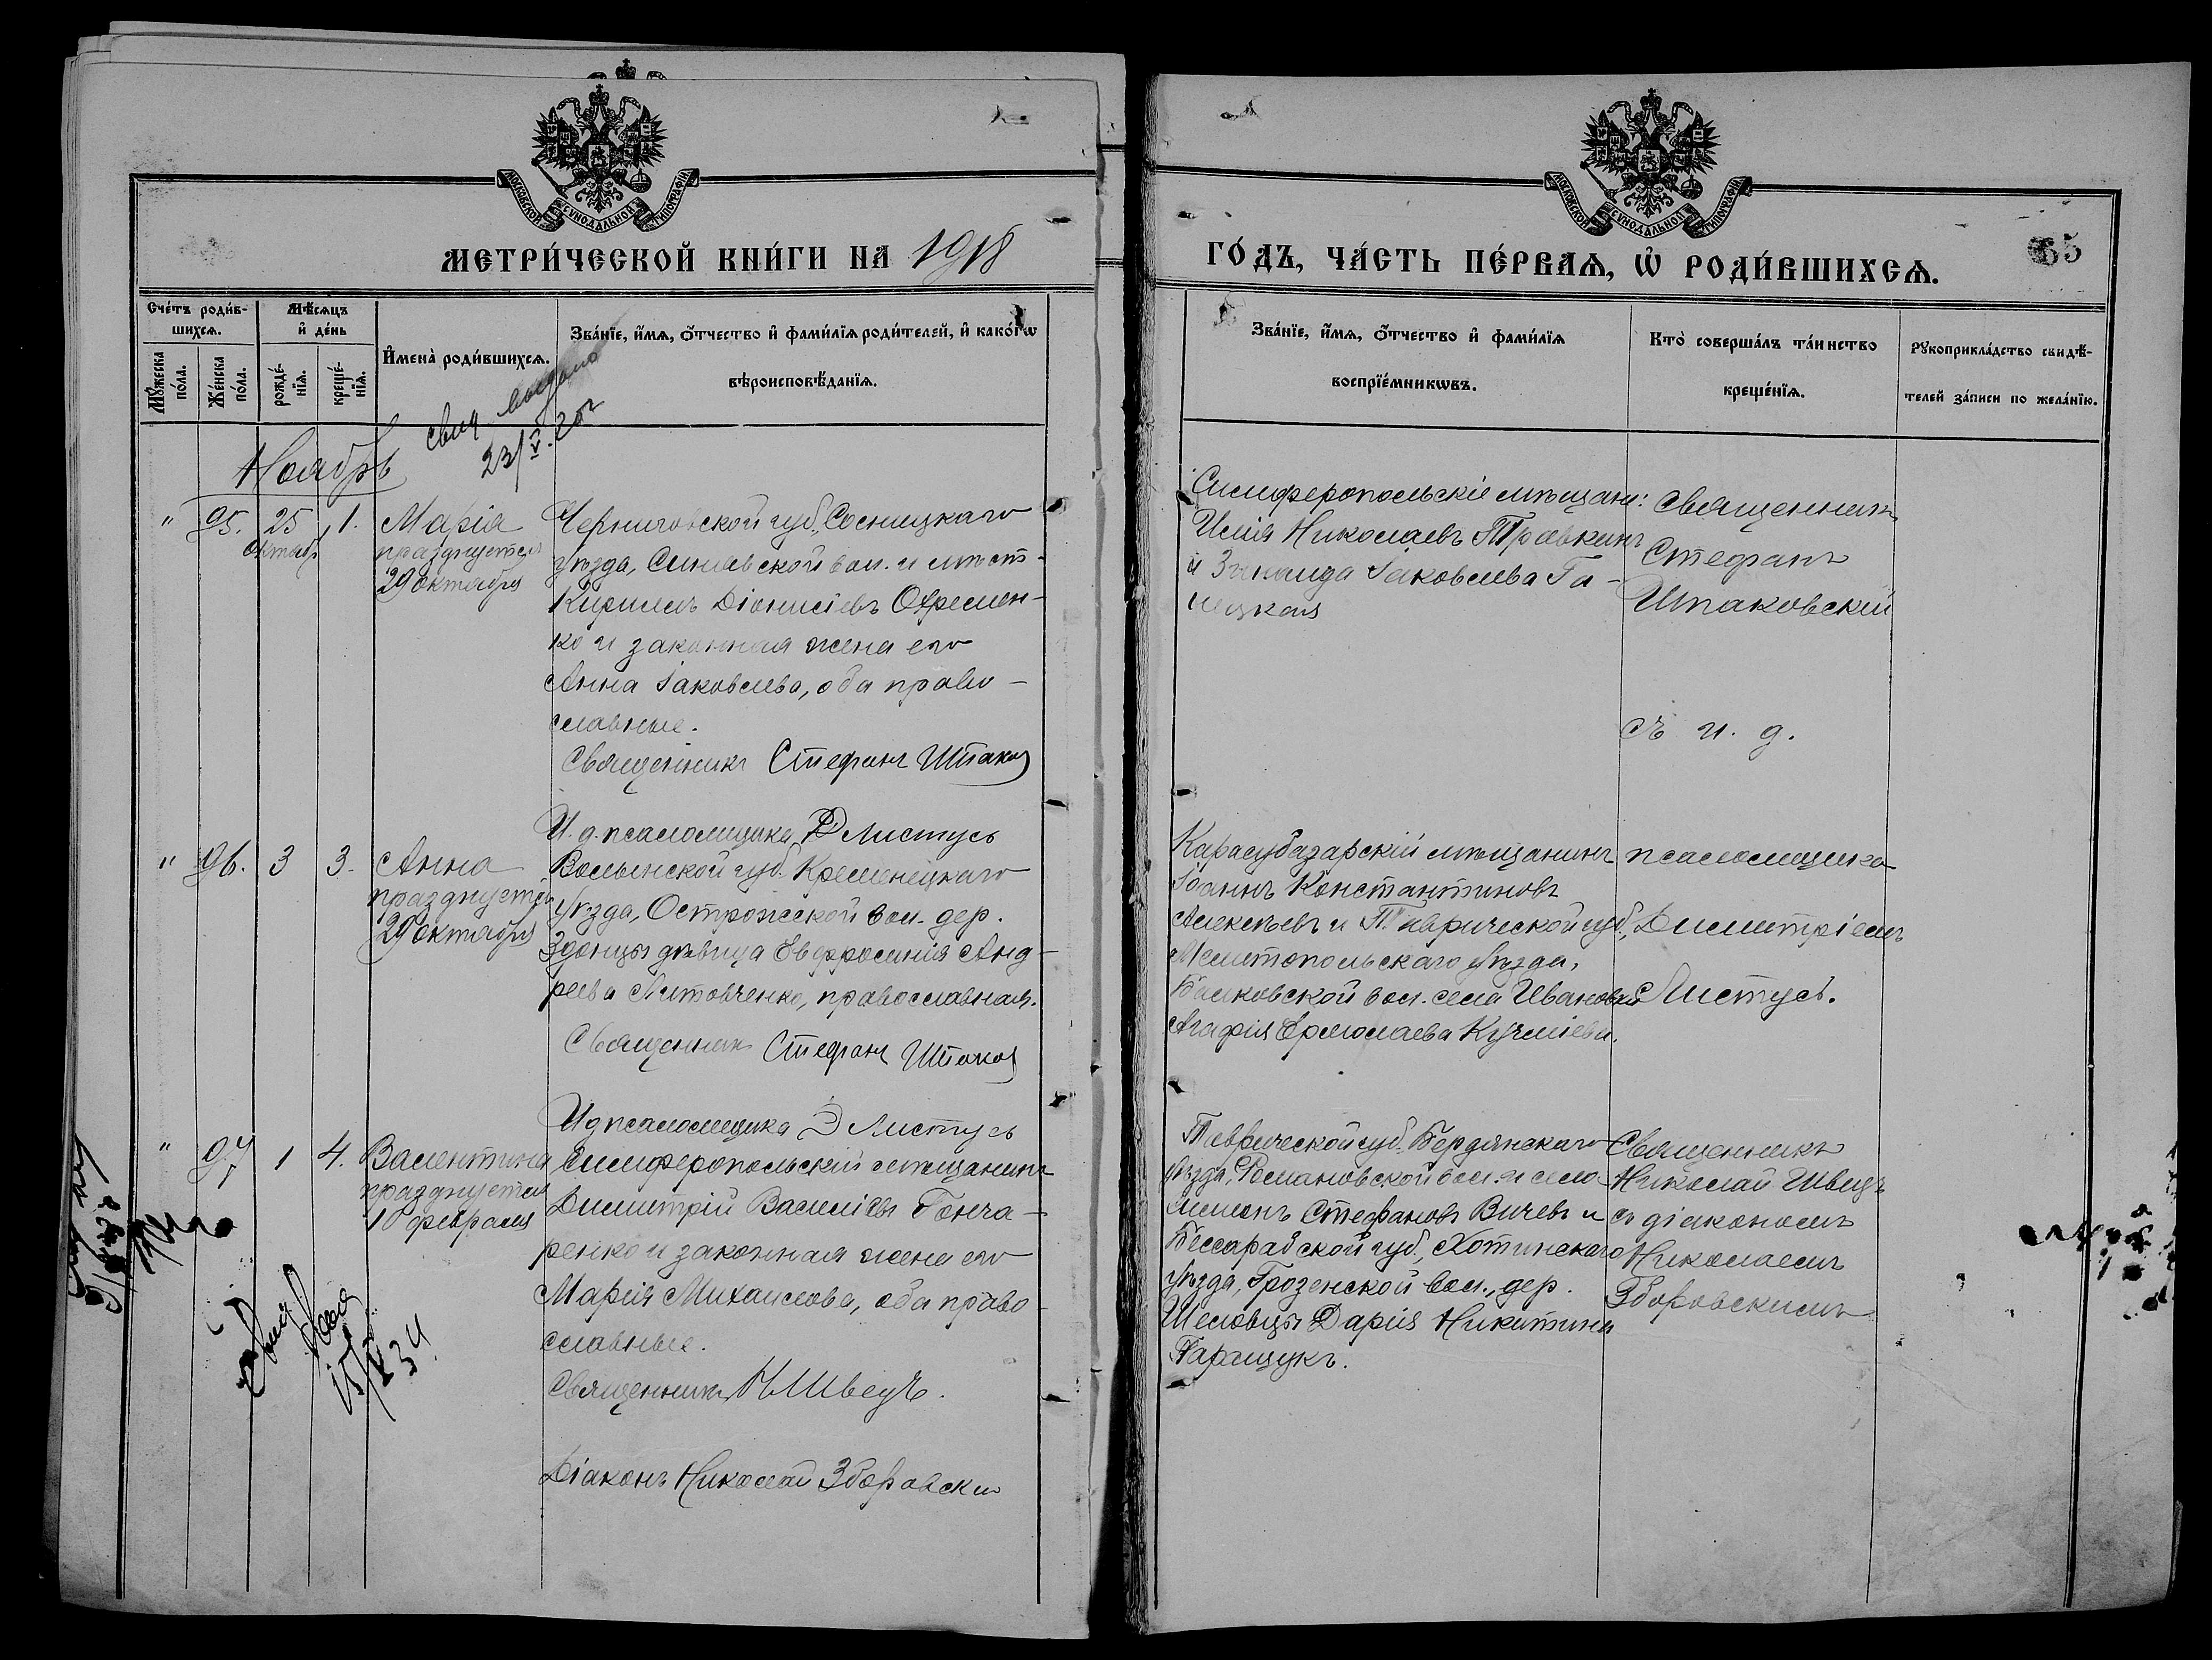 МОСКОВСКОЙ СѴНОДАЛЬНОЙ ТИПОГРАФІИ
МЕТРИ́ЧЕСКОЙ КНИ́ГИ НА 1918
Сче́тъ роди́в-
шихсѧ.
Мѣ́сѧцъ
и҆ де́нь
И҆мена̀ роди́вшихсѧ.
Зва́нїе, и҆́мѧ, ѻ҆́тчество и҆ фами́лїѧ роди́телей, и҆ како́гѡ
вѣроисповѣ́данїѧ.
Мꙋ́жеска
по́ла.
Же́нска
по́ла.
рожде́-
нїѧ.
креще́-
нїѧ.
свид выдано
23/V. 20г
Ноябрь
" 95. 25 1. Марія
октябр
празднуется
29 октября
Черниговской губ., Сосницкаго
уѣзда, Синявской вол. и мѣст-
Кириллъ Діонисіевъ Охремен-
ко и законная жена его
Анна Іаковлева, оба право-
славные.
Священникъ Стефанъ Шпаков
И. д. псаломщика Д Листусъ
" 96. 3 3. Анна
празднуется
29 октября
Волынской губ. Кременецкаго
уѣзда, Острожской вол. дер.
дѣвица Евфросинія Анд-
реева Литовченко, православная.
Священник Стефанъ Шпаков
И д псаломщика Д Листусъ
" 97 1 4. Валентина
празднуется
10 февраля
Симферопольскій мѣщанинъ
Димитрій Василіевъ Гонча-
ренко и законная жена его
Марія Михаилова, оба право-
славные.
Священникъ Н Швецъ.
Діаконъ Николай Зборовски
15/X 34
МОСКОВСКОЙ СѴНОДАЛЬНОЙ ТИПОГРАФІИ
ГО́ДЪ, ЧА́СТЬ ПЕ́РВАѦ, Ѡ҆ РОДИ́ВШИХСѦ.
65
Зва́нїе, и҆́мѧ, ѻ҆́тчество и҆ фами́лїѧ
воспрїе́мникѡвъ.
Кто̀ соверша́лъ та́инство
креще́нїѧ.
Рꙋкоприкла́дство свидѣ́-
телей за́писи по жела́нїю.
Симферопольскіе мѣщане:
Илія Николаевъ Травкинъ
и Зинаида Іаковлева Га-
лецкая
Священникъ
Стефанъ
Шпаковскій
съ и. д.
Карасубазарскій мѣщанинъ
Іоаннъ Константиновъ
Алексѣевъ и Таврической губ.,
Мелитопольскаго уѣзда,
Балковской вол. села Ивановки
Агафія Ермолаева Кучміева.
псаломщика
Димитріемъ
Листусъ.
Таврической губ. Бердянскаго
уѣзда, Романовской вол. и села
Симеонъ Стефановъ Вичевъ и
Бессарабской губ., Хотинскаго
уѣзда, Грозенской вол., дер.
Шеловцы Дарія Никитина
Паращукъ.
Священникъ
Николай Швецъ
съ діакономъ
Николаемъ
Зборовскимъ